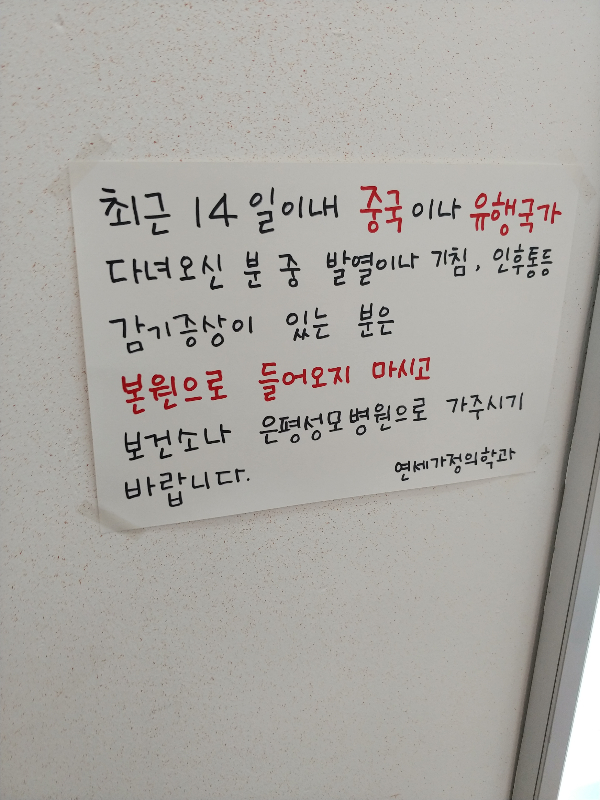 최근 14일이내 중국이나 유행국가
다녀오신 분 중 발열이나 기침, 인후통등
감기증상이 있는 분은
본원으로 들어오지 마시고
보건소나 은평성모병원으로 가주시기
바랍니다. 연세가정의학과